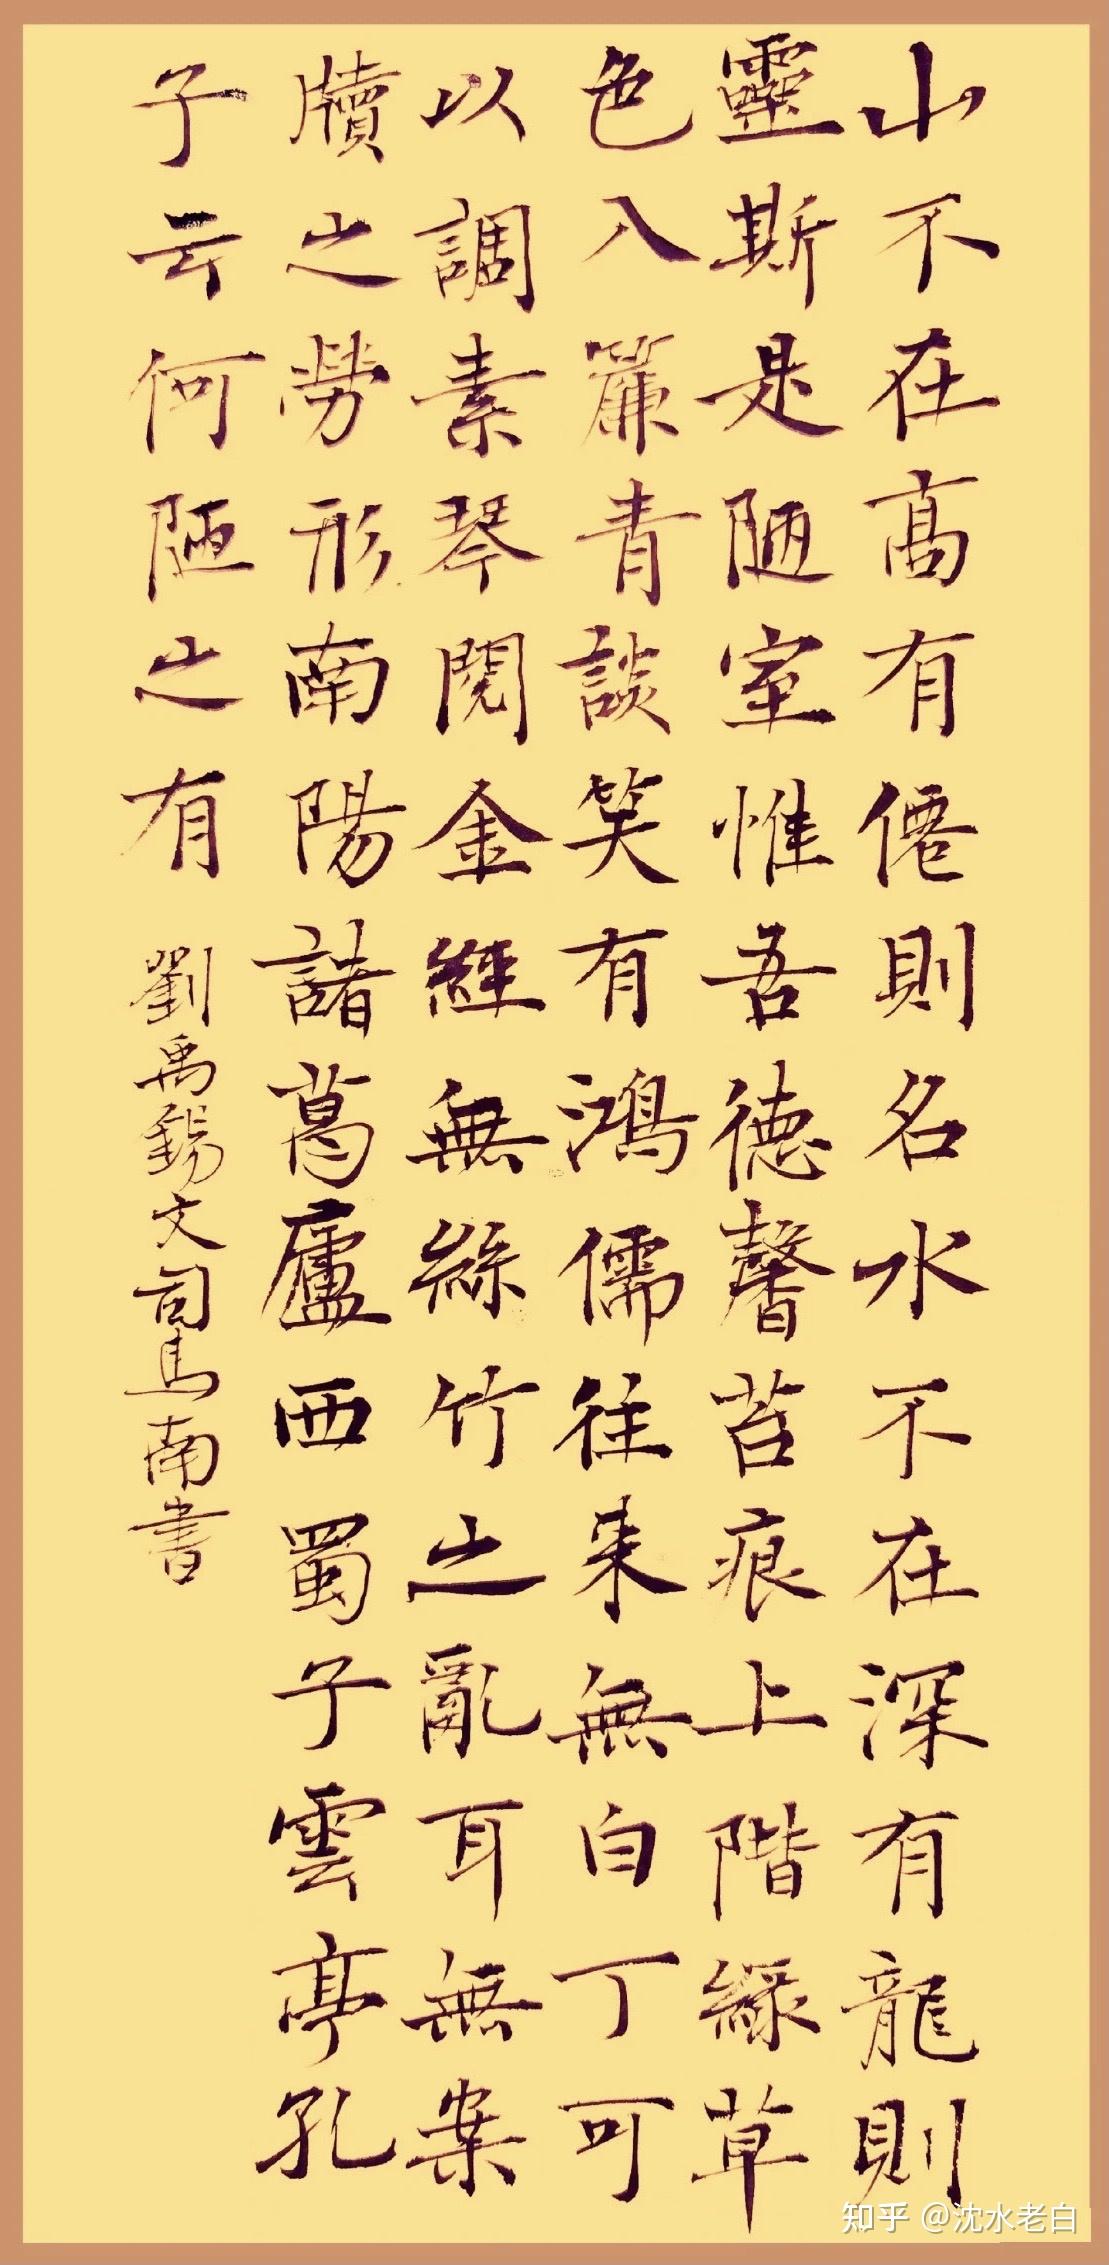 山不在高有僊則名水不在深有龍則
靈斯是陋室惟吾德馨苔痕上階綠草
色入簾青談笑有鴻儒往来無白丁可
以調素琴閱金經無絲竹之亂耳無案
牘之勞形南陽諸葛廬西蜀子雲亭孔
子云何陋之有 劉禹錫文司馬南書
知乎 @沈水老白